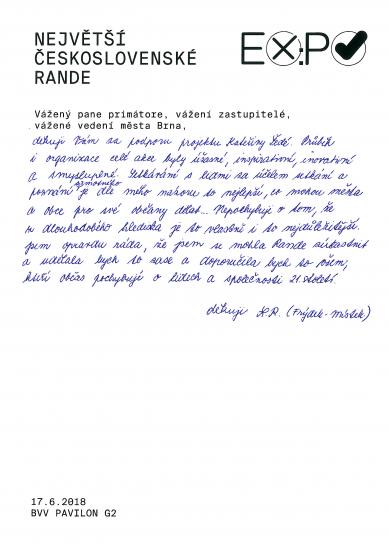 NEJVĚTŠÍ
ČESKOSLOVENSKÉ
RANDE
EX:PO
Vážený pane primátore, vážení zastupitelé,
vážené vedení města Brna,
děkuji Vám za podporu projektu Kateřiny Šedé. Průběh
i organizace celé akce byly úžasné, inspirativní, inovativní
a smysluplné. Setkávání s lidmi za účelem setkání a
poznání samotného je dle mého názoru to nejlepší, co mohou města
a obce pro své občany dělat... Nepochybuji o tom, že
z dlouhodobého hlediska je to vlastně i to nejdůležitější.
Jsem opravdu ráda, že jsem se mohla Rande zúčastnit
a udělala bych to zase a doporučila bych to všem,
kteří občas pochybují o lidech a společnosti 21. století.
děkuji K.R. (Frýdek-Místek)
17.6.2018
BVV PAVILON G2